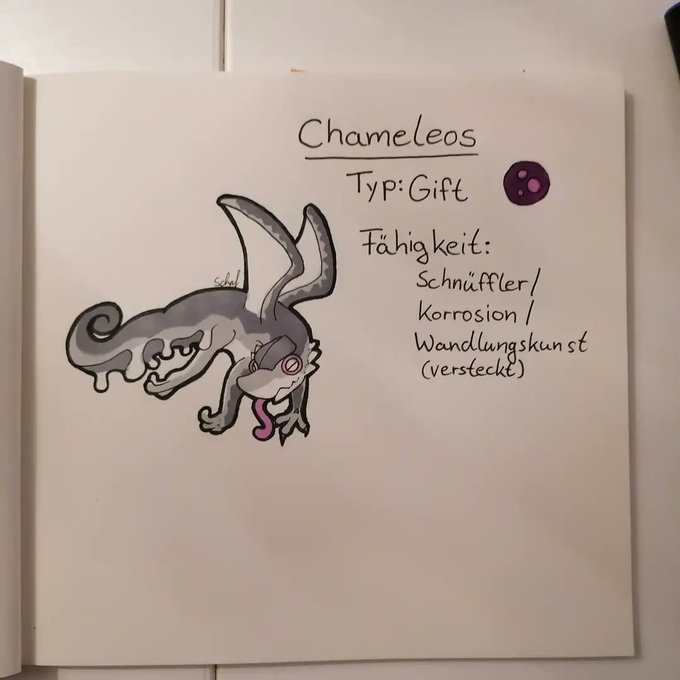 Chameleos
Typ: Gift
Fähigkeit:
Schnüffler/
Korrosion/
Wandlungskunst
(versteckt)
Schaf